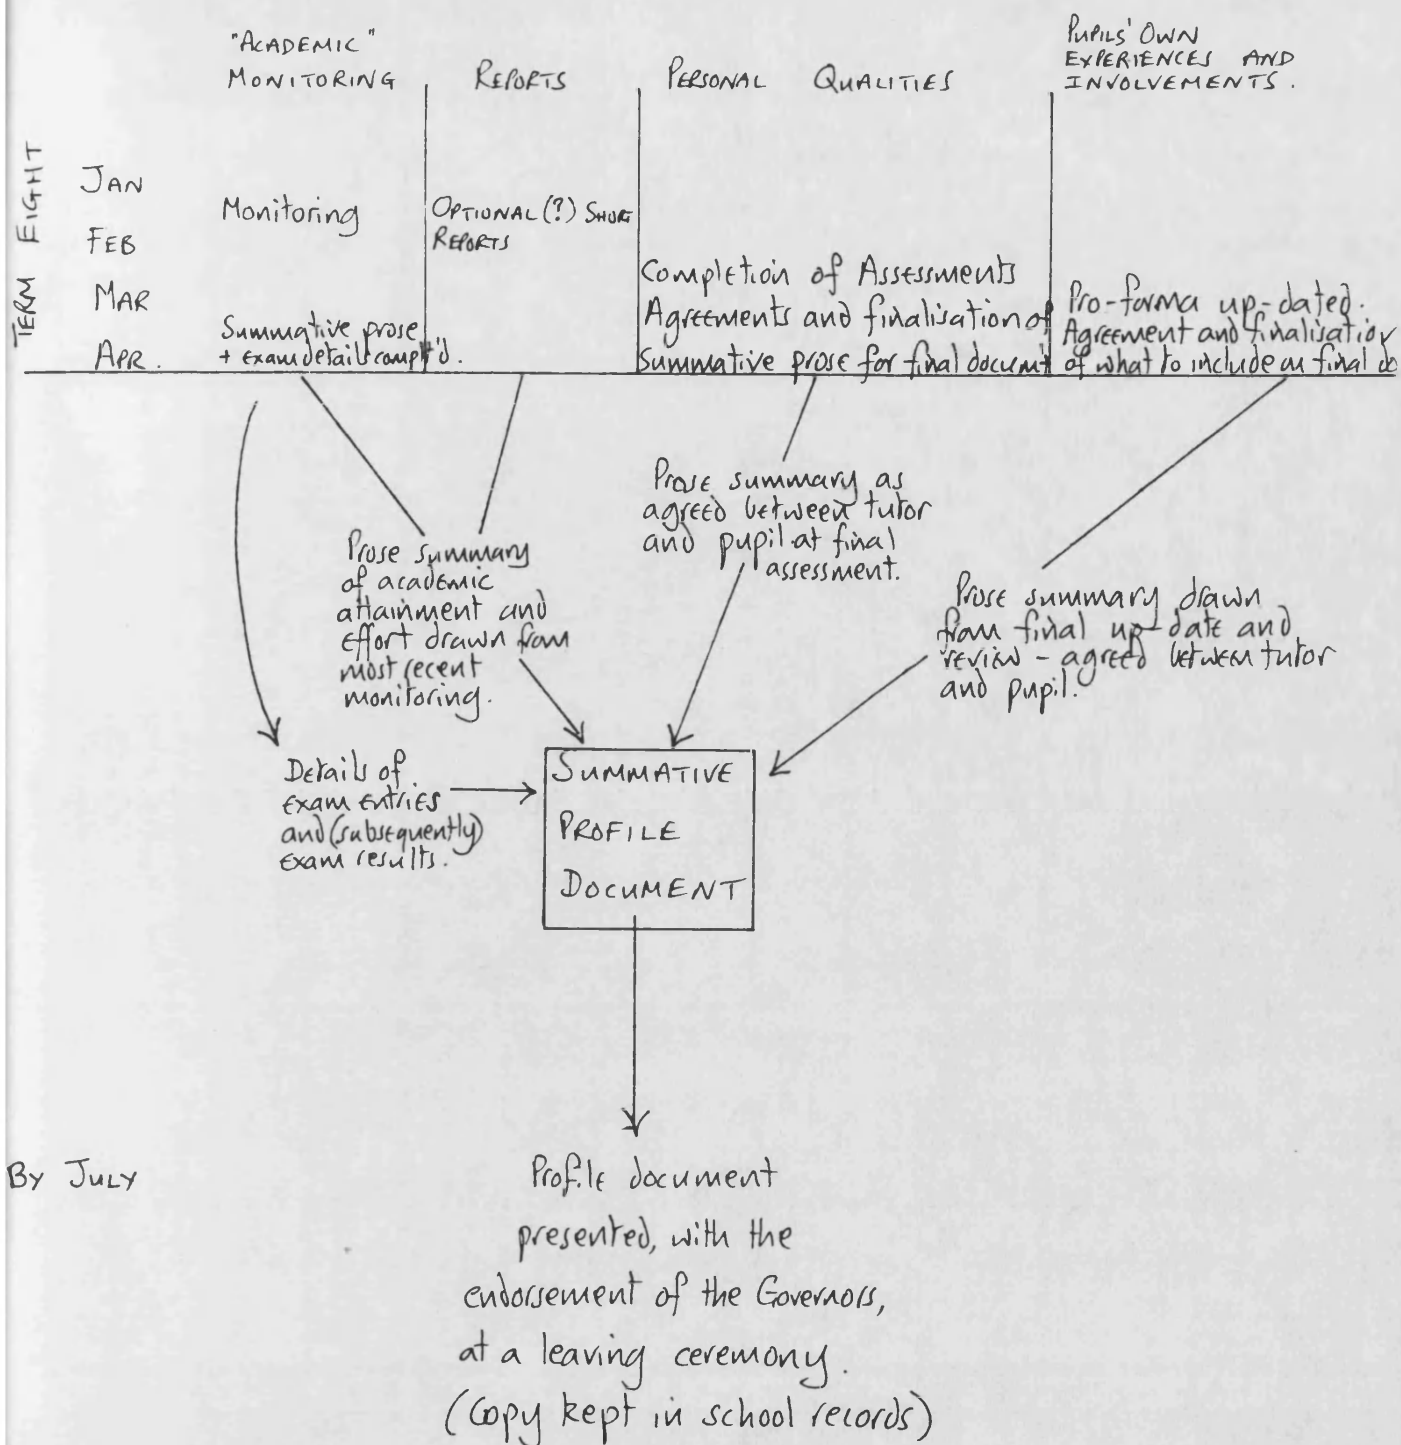 "ACADEMIC"
MONITORING
REPORTS
PERSONAL QUALITIES
PUPILS' OWN
EXPERIENCES AND
INVOLVEMENTS.
TERM EIGHT
JAN
FEB
MAR
APR.
Monitoring
Summative prose
+ exam detail compl't'd.
OPTIONAL (?) SHORT
REPORTS
Completion of Assessments
Agreements and finalisation of
Summative prose for final document
Pro-forma up-dated.
Agreement and finalisation
of what to include on final do
Prose summary
of academic
attainment and
effort drawn from
most recent
monitoring.
Prose summary as
agreed between tutor
and pupil at final
assessment.
Prose summary drawn
from final up-date and
review - agreed between tutor
and pupil.
Details of
exam entries
and (subsequently)
exam results.
SUMMATIVE
PROFILE
DOCUMENT
BY JULY
Profile document
presented, with the
endorsement of the Governors,
at a leaving ceremony.
(Copy kept in school records)